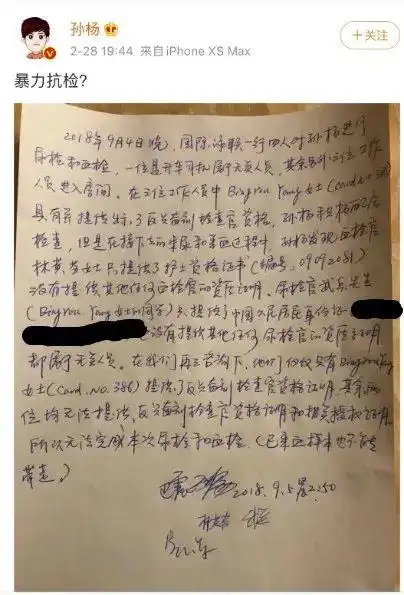 孙杨
2-28 19:44 来自iPhone XS Max
+关注
暴力抗检?
2018年9月4日(晚),国际泳联一行四人对孙杨进行
尿检和血检,一位是开车司机属于无关人员,其余另外三位工作
人员进入房间。在三位工作人员中Bingrou Yang女士(Card.no.386)
具有并提供出示了反兴奋剂检查官资格,孙杨积极配合
检查,但是在接下来的采尿和采血过程中,孙杨发现血检官
林黄芬女士只提供了护士资格证书(编号,09092081)
没有提供其他任何血检官的资质证明。尿检官 先生
(Bingrou Yang女士的同学)只提供了中国公民居民身份证
没有提供其他任何尿检官的资质证明
都属于无关人员。在我们再三咨询下,他们仅仅只有Bingrou Yang
女士(Card.No.386)提供了反兴奋剂检查官资格证明,其余两
位均无法提供反兴奋剂检查官资格证明和相关授权证明,
所以无法完成本次尿检和血检。(已采血样本也不能
带走。)
2018.9.5晨2:50